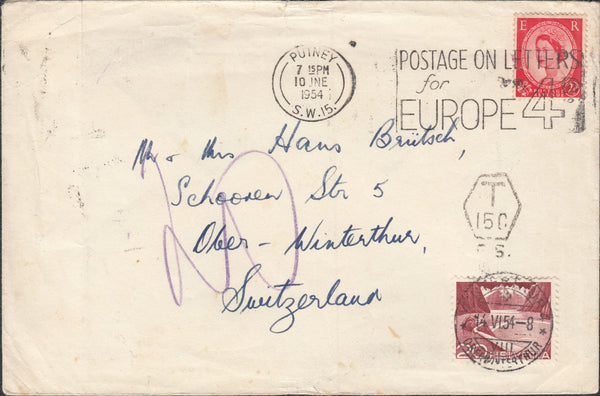 E R
PUTNEY
7 15PM
10 JNE
1954
S.W.15.
POSTAGE ON LETTERS
for
EUROPE 4D
Mr & Mrs Hans Brütsch,
Schooren Str 5
Ober - Winterthur,
Switzerland
T
15C
F.S.
20
14 VI.54-8
VIII
OBERWINTERTHUR